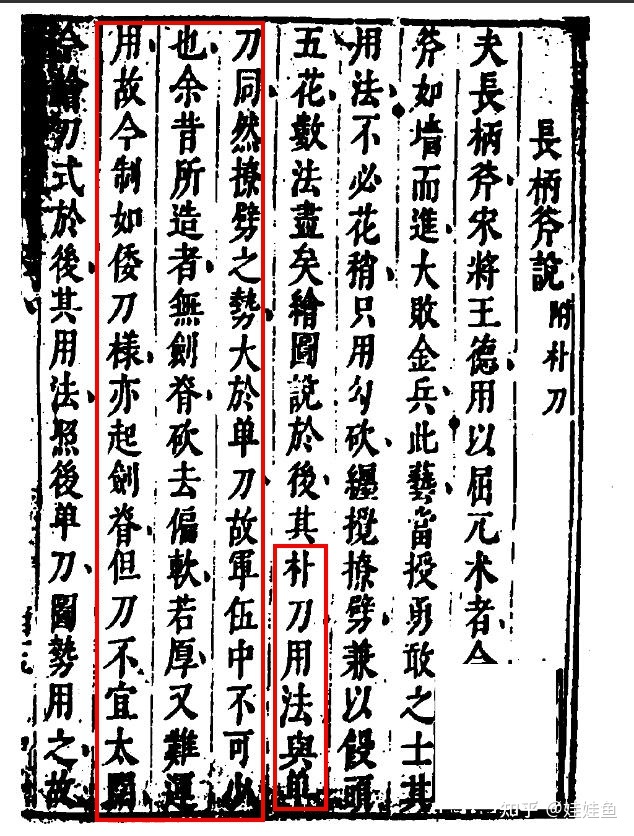 長柄斧說 附朴刀
夫長柄斧宋將王德用以屈兀朮者
斧如墻而進大敗金兵此藝當授勇敢之士其
用法不必花稍只用勾砍纏攪撩劈兼以饅頭
五花數法盡矣繪圖說於後其朴刀用法與单
刀同然撩劈之勢大於单刀故軍伍中不可少
也余昔所造者無劍脊砍去偏軟若厚又難運
用故今制如倭刀樣亦起劍脊但刀不宜太闊
繪刀式於後其用法照後单刀圖勢用之故
知乎 @娃娃鱼